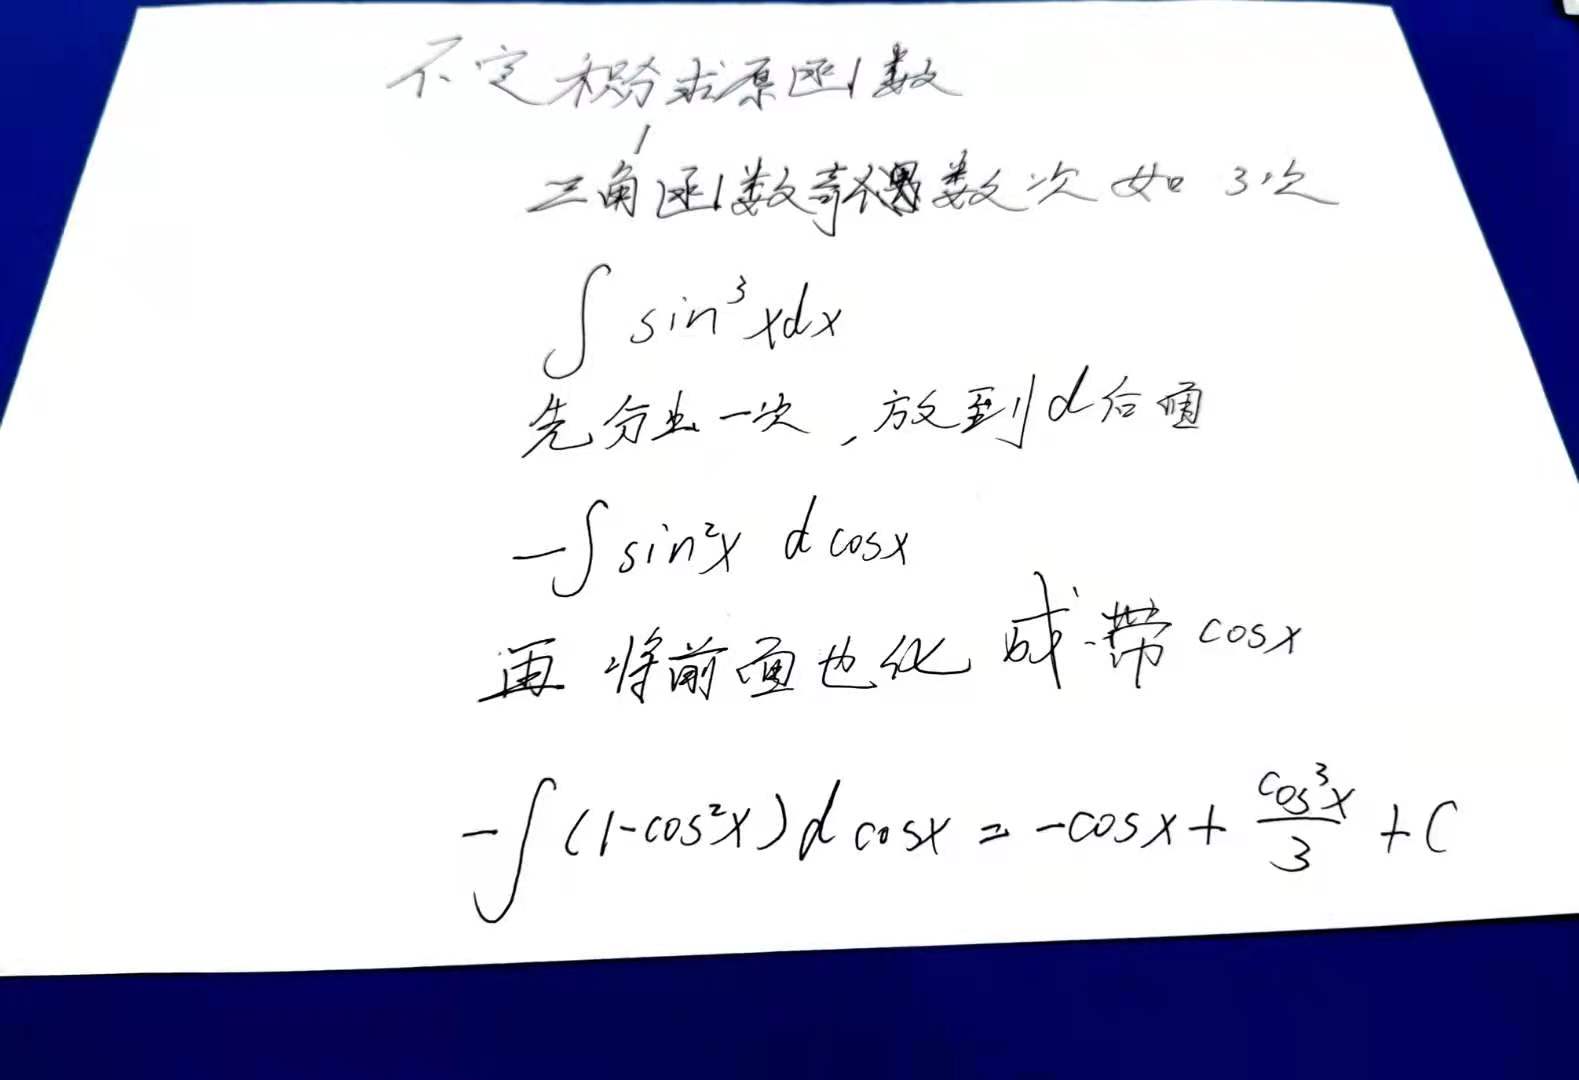 不定积分求原函数
三角函数奇偶数次 如 3次
∫ sin³xdx
先分出一次,放到d后面
-∫sin²x d cosx
再将前面也化成带cosx
-∫(1-cos²x)d cosx = -cosx + cos³x/3 + C